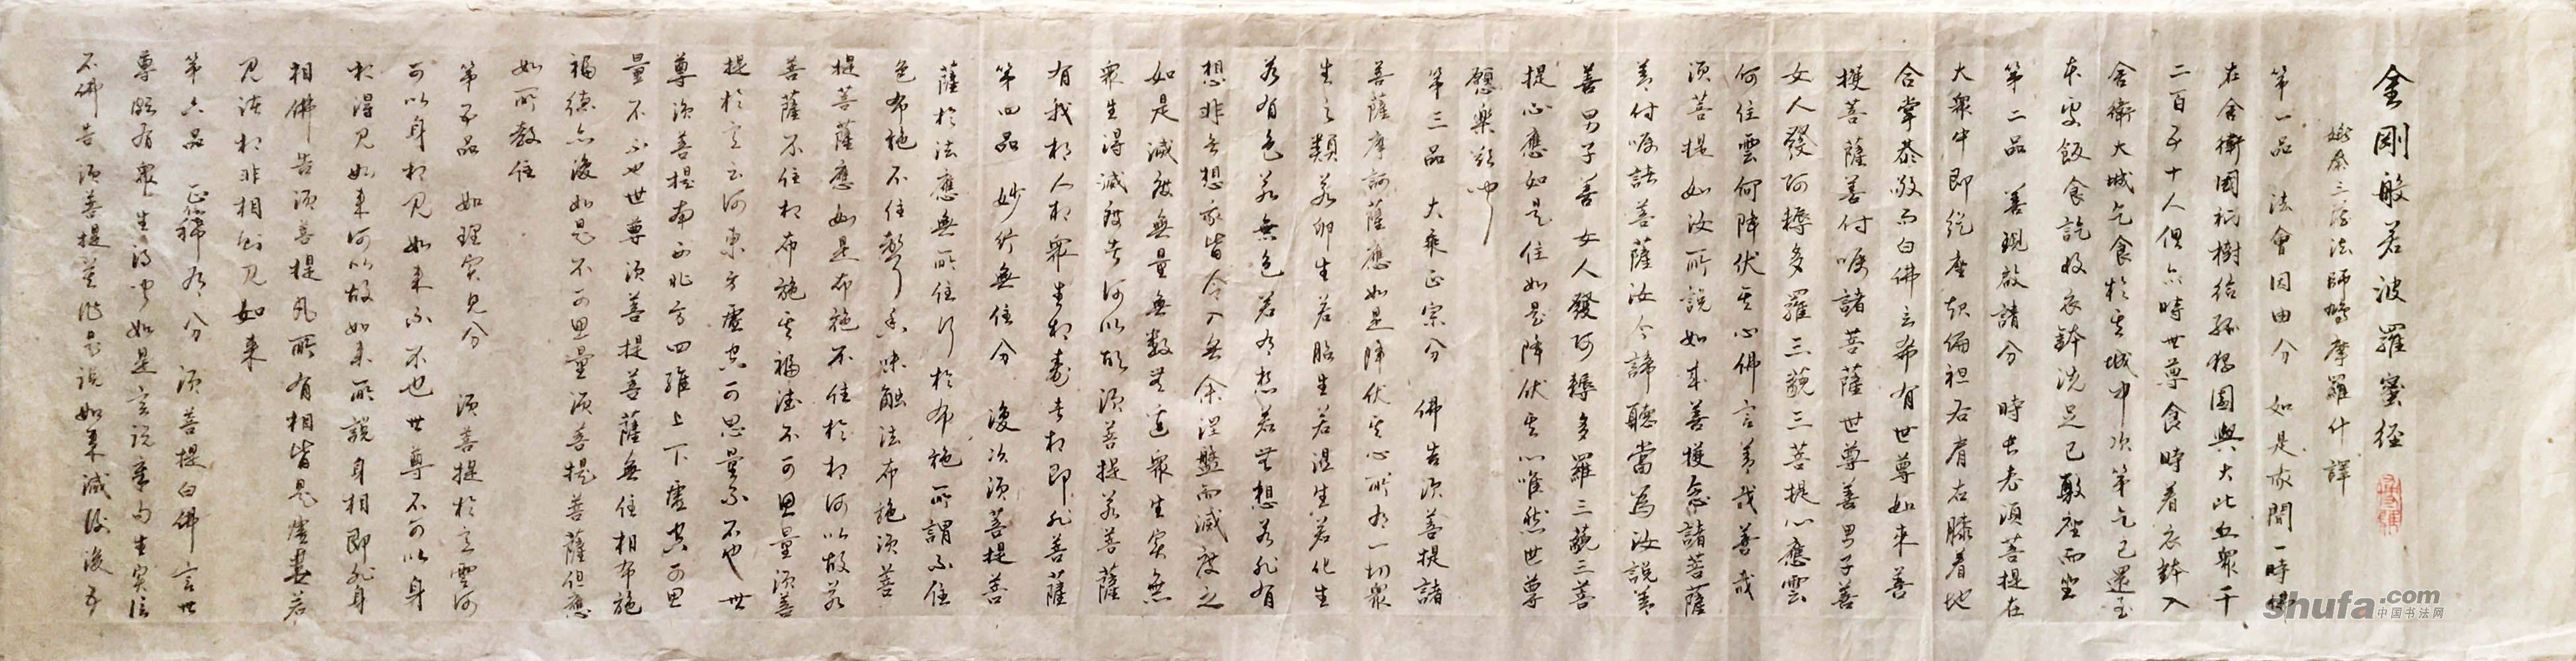 金剛般若波羅蜜经
姚秦三藏法師鳩摩羅什譯
第一品 法會因由分 如是我聞一時佛
在舍衛國祇樹给孤獨園與大比丘眾千
二百五十人俱尔時世尊食時着衣鉢入
舍衛大城乞食於其城中次第乞已還至
本处飯食訖收衣鉢洗足已敷座而坐
第二品 善現啟請分 時長老須菩提在
大眾中即從座起偏袒右肩右膝着地
合掌恭敬而白佛言希有世尊如来善
護菩薩善付嘱諸菩薩世尊善男子善
女人發阿耨多羅三藐三菩提心應雲
何住雲何降伏其心佛言善哉善哉
須菩提如汝所說如来善護念諸菩薩
善付嘱諸菩薩汝今諦聽當為汝說善
善男子善女人發阿耨多羅三藐三菩
提心應如是住如是降伏其心唯然世尊
願樂欲聞
第三品 大乘正宗分 佛告須菩提諸
菩薩摩訶薩應如是降伏其心所有一切眾
生之類若卵生若胎生若湿生若化生
若有色若無色若有想若无想若非有
想非无想我皆令入无余涅盤而滅度之
如是滅度無量無数无边眾生實無
眾生得滅度者何以故須菩提若菩薩
有我相人相眾生相寿者相即非菩薩
第四品 妙行無住分 復次須菩提菩
薩於法應無所住行於布施所謂不住
色布施不住聲香味触法布施須菩
提菩薩應如是布施不住於相何以故若
菩薩不住相布施其福德不可思量須菩
提於意云何東方虚空可思量不不也世
尊須菩提南西北方四維上下虚空可思
量不不也世尊須菩提菩薩無住相布施
福德亦復如是不可思量須菩提菩薩但應
如所教住
第五品 如理实見分 須菩提於意雲何
可以身相見如来不不也世尊不可以身
相得見如来何以故如来所說身相即非身
相佛告須菩提凡所有相皆是虚妄若
見諸相非相则見如来
第六品 正信稀有分 須菩提白佛言世
尊頗有眾生得聞如是言说章句生实信
不佛告須菩提莫作是說如来滅後後五
shufa.com
中国书法网